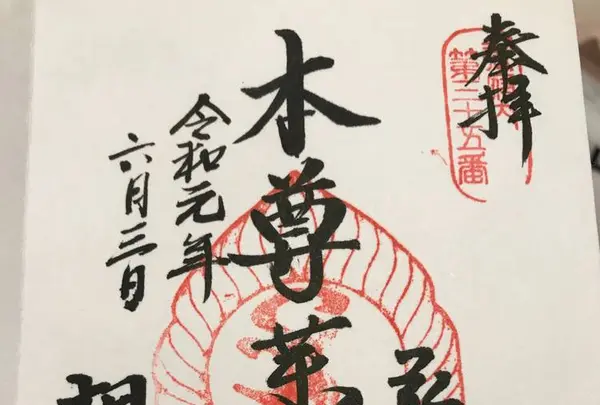 奉拝
第三十五番
本尊薬
令和元年
六月三日